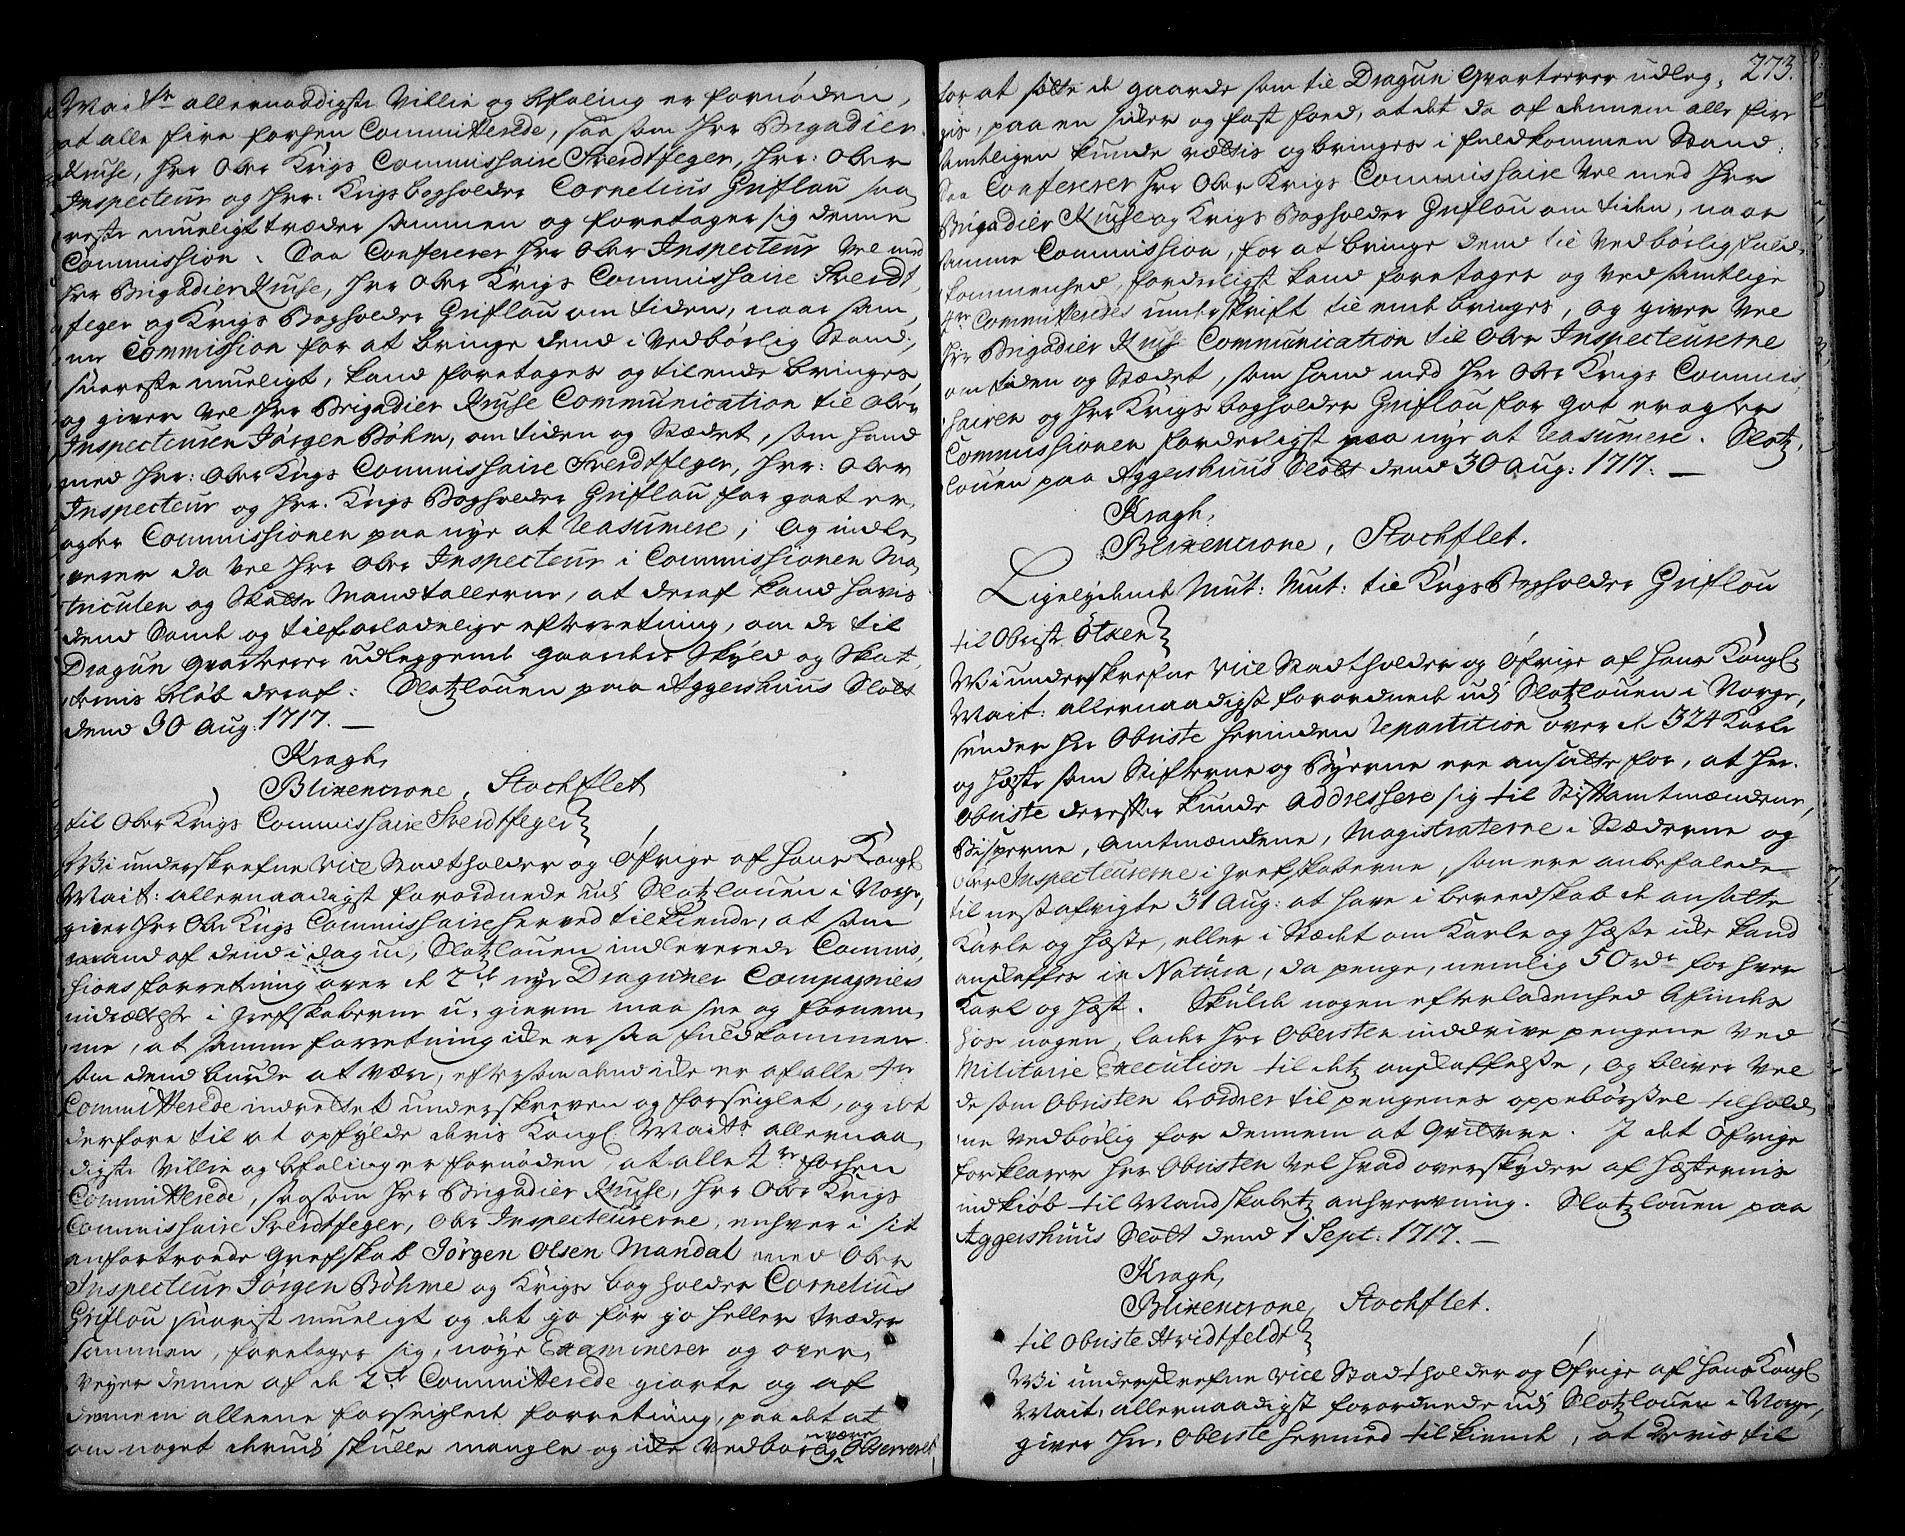 Mait: allernaadigste Villie og befaling er fornøden,
at alle fire forhen Committerede, saa som Hr Brigadier
Kruse, Hr Ober Krigs Commissaire Sverdtfeger, Hr: Ober
Inspecteur og Hr: Krigsbogholder Cornelius Griflau saa
reste mueligt træder sammen og foretager sig denne
Commission. Saa Confererer Hr Ober Inspecteur vel med
Hr Brigadier Kruse, Hr Ober Krigs Commissaire Sverdt,
feger og Krigs Bogholder Griflau om tiden, naar sam,
me Commission for at bringe dend i Vedbørlig Stand,
snareste mueligt, kand foretages og til ende bringes,
og giver vel Hr Brigadier Kruse Communication til Ober
Inspecteuren Jørgen Bøhm, om tiden og Stædet, som hand
med Hr: Ober Krigs Commissaire Sverdtfeger, Hr: Ober
Inspecteur og Hr. Krigs Bogholder Griflau for gaat er,
agter Commissionen paa nye at reasumere; og indle,
verer da vel Hr Ober Inspecteur i Commissionen Ma,
triculen og Skatte Mandtallerne, at deraf kand havis
dend Sande og tilforladelige efterretning, om de til
Dragun Qvarterer udleggende gaarders Skyld og Skat,
ternis beløb deraf: Slotzlouen paa Aggershuus Slott
dend 30 Aug: 1717.
Kragh,
Blixencrone, Stochflet
til Ober Krigs Commissaire Sverdtfeger
Wi underskrefne Vice Stadtholder og Øfrige af Hans Kongl
Mait: allernaadigst forordnede udj Slotzlouen i Norge,
giver Hr Ober Krigs Commissaire herved tilkiende, at som
mand af dend i dag udj Slotzlouen indleverede Commis,
sions forretning over de 2de nye Dragoner Compagniers
indrættelse i Grefskaberne u-gierne maa see og fornem,
me, at samme forretning icke er saa fuldkommen
som dend burde at være, eftersom dend icke er af alle 4re
Committerede indrettet underskreven og forseiglet, og det
derfore til at opfylde deris Kongl Maits allernaa,
digste Villie og befaling er fornøden, at alle 4re forhen
Committerede, saasom Hr Brigadier Kruse, Hr Ober Krigs
Commissaire Sverdtfeger, Ober Inspecteurerne, enhver i sit
anfortroede Grefskab Jørgen Olsen Mandal med Ober
Inspecteur Jørgen Bøhme og Krigs bogholder Cornelius
Griflau snarist mueligt og det jo før jo heller træder
sammen, foretager sig, nøye Examinerer og over,
veyer denne af de 2de Committerede giorte og af
dennem alleene forseiglede forretning, paa det at
om noget derudj skulle mangle og icke Vedbørlig være Observeret
273.
for at sætte de gaarde som til Dragun Qvarterer udleg,
gis, paa en sicker og fast foed, at det da af dennem alle fire
samtligen kunde rættis og bringes i fuldkommen Stand.
Saa Confererer Hr Ober Krigs Commissaire vel med Hr
Brigadier Kruse og Krigs Bogholder Griflau om tiden, naar
samme Commission, for at bringe dend til Vedbørlig fuld,
kommenhed, forderligst kand foretages og ved samtlige
4re Committeredes underskrift til ende bringes, og giver vel
Hr Brigadier Kruse Communication til Ober Inspecteurerne
om tiden og Stædet, som hand med Hr Ober Krigs Commis,
sairen og Hr Krigs bogholder Griflau for got eragter
Commissionen forderligst paa nye at reasumere. Slotz,
louen paa Aggershuus Slott dend 30 Aug: 1717.
Kragh,
Blixencrone, Stochflet.
Ligelydende Mut: Mut: til Krigs Bogholder Griflau
til Obriste Øtken
Wi underskrefne Vice Stadtholder og Øfrige af Hans Kongl
Mait: allernaadigst forordnede udj Slotzlouen i Norge,
sender Hr Obriste herinden Repartition over de 324 Karle
og Hæste som Stifterne og Byerne ere ansatte for, at Hr.
Obriste derefter kunde addressere sig til Stiftamtmændene,
Bisperne, Amtmændene, Magistraterne i Stæderne og
Ober Inspecteurerne i Grefskaberne, som ere anbefalede
til nestafvigte 31 Aug: at have i bereedskab de ansatte
Karle og Hæste, eller i Stædet om Karle og Hæste icke kand
anskaffes in Natura, da penge, nemlig 50 rdr for hver
Karl og Hæst. Skulde nogen efterladenhed befindes
hos nogen, lader Hr Obersten inddrive pengene ved
Militaire Execution til detz anskaffelse, og bliver vel
de som Obristen ordrer til pengenes oppebørsel tilhold,
ne Vedbørlig for dennem at Qvittere. J det Øfrige
forklarer Hr Obristen vel hvad overskyder af Hæsternis
indkiøb til Mandskabetz anhvervning. Slotzlouen paa
Aggershuus Slott dend 1 Sept: 1717.
Kragh,
Blixencrone, Stochflet.
til Obriste Hvidtfeldt
Wi underskrefne Vice Stadtholder og Øfrige af Hans Kongl
Mait: allernaadigst forordnede udj Slotzlouen i Norge,
giver Hr: Oberste hermed tilkiende, at deris til